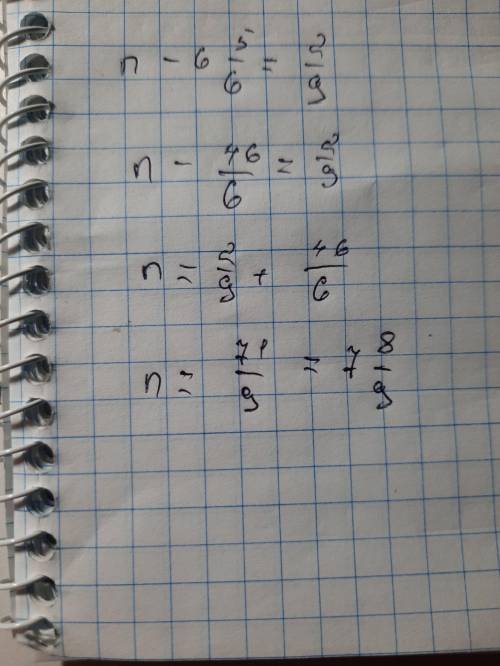 n - 6 5/6 = 2/9
n - 46/6 = 2/9
n = 2/9 + 46/6
n = 71/9 = 7 8/9